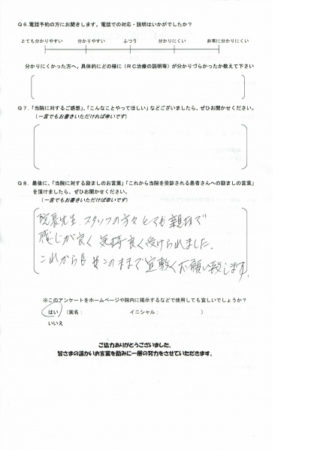 Q6.電話予約の方にお聞きします。電話での対応・説明はいかがでしたか？
とても分かりやすい 分かりやすい ふつう 分かりにくい 非常に分かりにくい
分かりにくかった方へ、具体的にどの様に（RC治療の説明等）が分かりづらかったか教えて下さい
Q7.「当院に対するご感想」、「こんなことやってほしい」などございましたら、ぜひお聞かせください。
（一言でもお書きいただければ幸いです）
Q8.最後に、「当院に対する励ましのお言葉」「これから当院を受診される患者さんへの励ましの言葉」
を頂けましたら、ぜひお聞かせください。
（一言でもお書きいただければ幸いです）
院長先生 スタッフの方々とても親切で
感じが良く 気持良く受けられました。
これからも 此のままで宜敷くお願い致します。
※このアンケートをホームページや院内に掲示するなどで使用しても宜しいでしょうか？
はい （匿名： イニシャル： ）
いいえ
ご協力ありがとうございました。
皆さまの温かいお言葉を励みに一層の努力をさせていただきます。